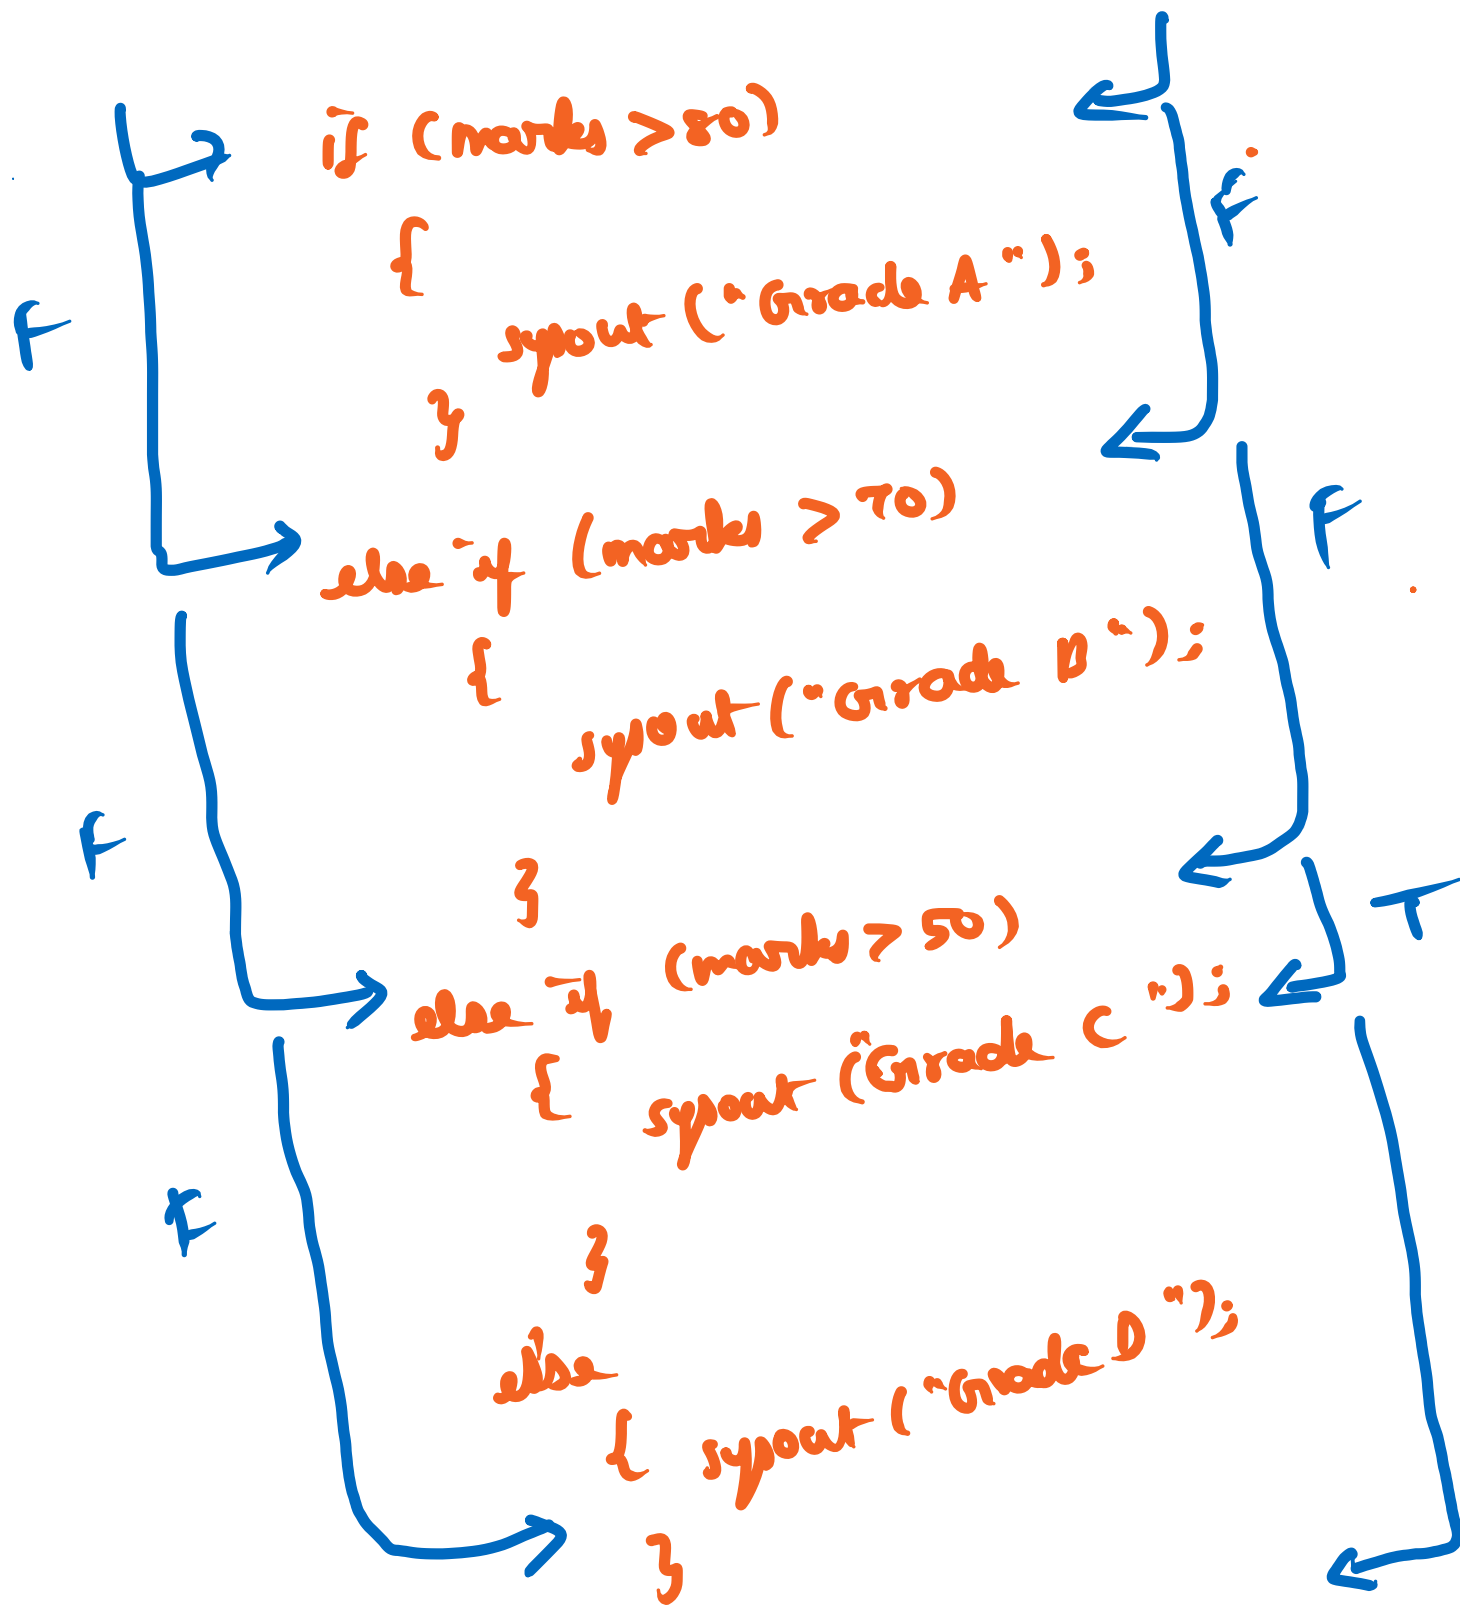 if (marks >80)
F
{
syout ("Grade A");
F
}
else if (marks >70)
F
{
syout ("Grade B");
F
}
else if (marks > 50)
T
{
syout ("Grade C");
F
}
else
{ syout ("Grade D");
}